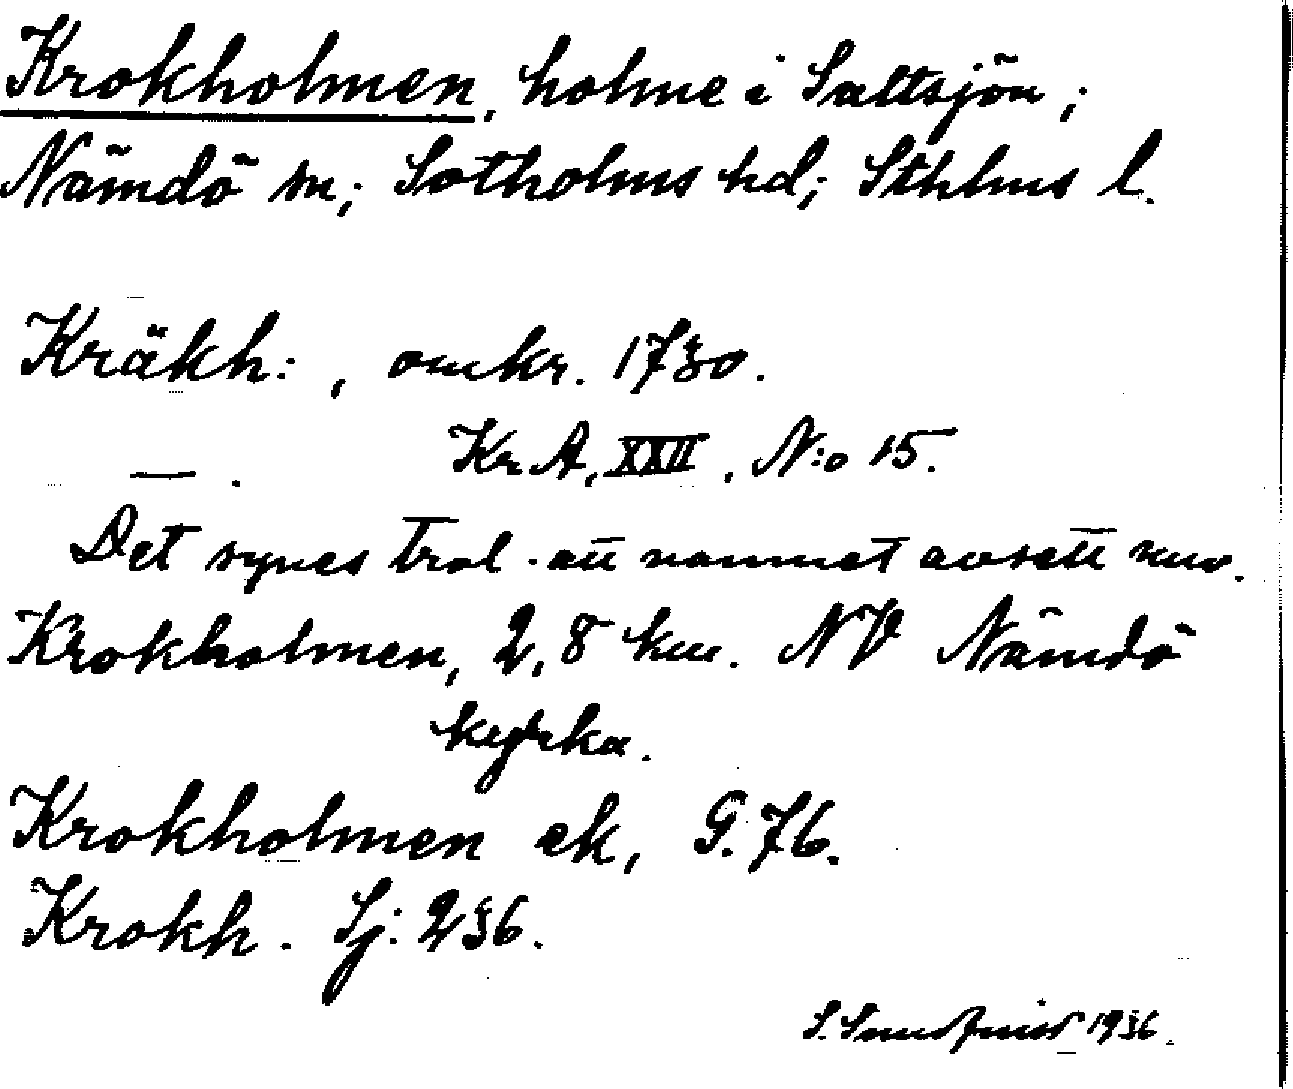 Krokholmen, holme i Saltsjön;
Nämdö sn; Sotholms hd; Sthlms l.
Kräkh:, omkr. 1730.
— . Kr A, XXII, N:o 15.
Det synes trol. att namnet avsett nuv.
Krokholmen, 2,8 km. NV Nämdö
kyrka.
Krokholmen ek, G. 76.
Krokh. Sj: 236.
S. 1936.